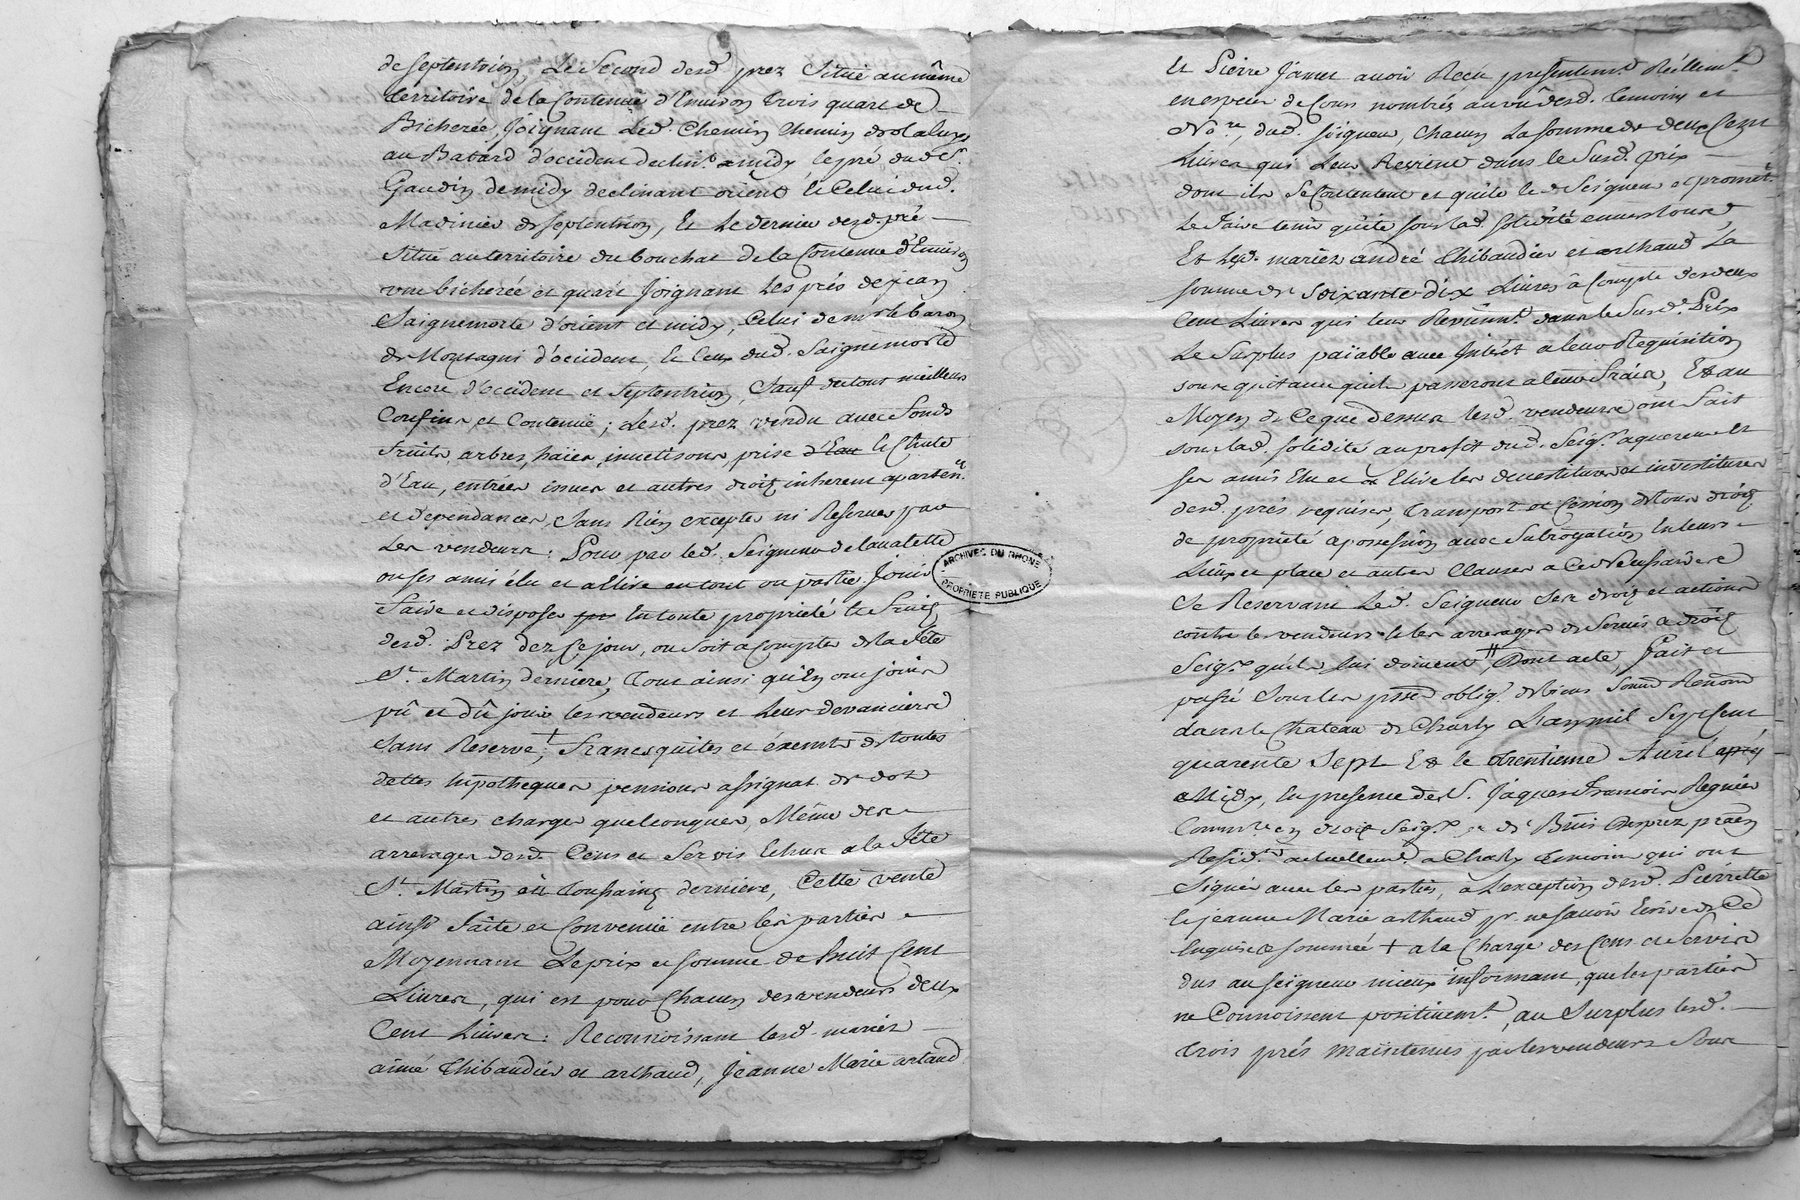 de septentrion, Le Second desd. prez Situé au même
territoire de la Contenuë d'Environ trois quart de
Bicherée, Joignant Led. Chemin
au Batard d'occident declin.t a midy le pré dud. Sr.
Gaudin de midy declinant orient & Celui dud.
Madinier de septentrion, Et Le dernier desd. pré
Situé au territoire du bouchat de la Contenuë d'Environ
une bicherée et quart Joignant Les prés de jean
Saignemorte d'orient et midy, Celui de mr. le baron
de Montagni d'occident, & Ceux dud. Saignemorte
Encore d'occident et Septentrion, Sauf de tout meilleurs
Confins et Contenuë; Lesd. prez vendu avec Fonds
Fruits, arbres, haies, prise d'Eau & Chute
d'Eau, entrées issues et autres droitz inherent aparten.ces
et dependances, Sans Rien excepter ni Reserver par
Les vendeurs: Pour par led. Seigneur de Lavalette
ou ses amis élu et a Elire en tout ou partie Jouir
Faire et disposer En toute proprieté & Fruitz
desd. Prez dez Ce jour, ou Soit a Compter de la Fête
St. Martin derniere, Tout ainsi qu'En ont joüir
pû et dû jouir les vendeurs et Leur devanciers
Sans Reserve, + Francs quites et éxempts de toutes
dettes hipotheques pensions assignat de dot
et autres charges quelconques, Même des
arrerages desd. Cens et Servis Echus a la Fête
St. Martin ou Toussaint derniere, Cette vente
ainsi Faite et Convenuë entre les parties
Moyennant Le prix et somme de huit Cent
Livres, qui est pour Chacun des vendeurs deux
Cent Livres: Reconnoissant lesd. mariés
aimé Thibaudier et arthaud, Jeanne Marie artaud
Et Pierre Jamet avoir Reçu presentem.t Réellem.t
en especes de Cours nombrés au vû desd. temoins et
No.re, dud. Seigneur, Chacun La somme de deux Cent
Livres qui Leur Revient dans le Susd. prix
dont ils Se Contentent et quite le d. Seigneur et promet.t
Le Faire tenir quite sous lad. solidité envers tous
Et lesd. mariez andré Thibaudier et arthaud La
somme de Soixante dix Livres à Compte des deux
Cent Livres qui leur Revienn.t dans le Susd. Prix
Le Surplus païable avec Intérêt a leur Requisition
sous quitance qu'ils passeront a leurs Fraix, Et au
Moyen de Ce que dessus lesd. vendeurs ont Fait
sous lad. solidité au profit dud. Seig.r aquereur &
ses amis Elu et a Elire les devestitures et investitures
desd. prés requises, transport et Cession de tous droitz
de proprieté a possession avec Subrogation En leurs
Lieux et place et autres Clauses a Ce Necessaires
Se Reservant Led. Seigneur Ses droitz et actions
contre les vendeurs & les arrerages de Servis a droitz
Seig.x qu'ils lui doivent, ++ Dont acte, Fait et
passé Sous les oblig. de biens Soum. Renon.
dans le Chateau de Charly L'an mil Sept Cent
quarente Sept Et le trentieme Avril après
Midy, En presence de S. Jaques Francois Regnier
Comm.re en droitz Seig.x
Resid.t actuellem.t a Charly temoins qui ont
Signés avec les parties, à L'exception desd. Pierrette
& jeanne Marie arthaud pr. ne savoir Ecrire de Ce
Enquises & sommée + a la Charge des Cens et Servis
dus au seigneur mieux informant, que les parties
ne Connoissent positivem.t, au Surplus lesd.
trois prés maintenus par les vendeurs Sous
ARCHIVES DU RHONE
PROPRIETE PUBLIQUE